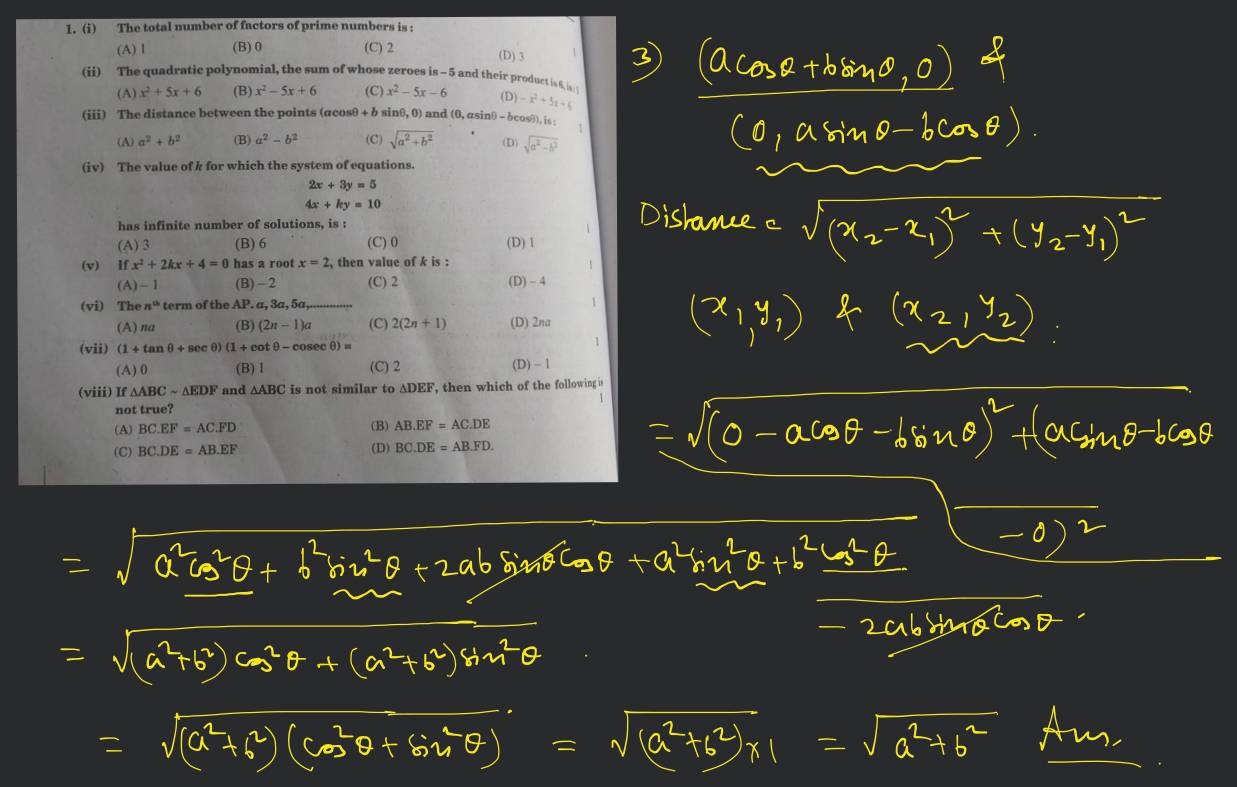 1. (i) The total number of factors of prime numbers is :
(A) 1 (B) 0 (C) 2 (D) 3
(ii) The quadratic polynomial, the sum of whose zeroes is – 5 and their product is 6, is :
(A) x² + 5x + 6 (B) x² – 5x + 6 (C) x² – 5x – 6 (D) – x² + 5x + 6
(iii) The distance between the points (acosθ + b sinθ, 0) and (0, asinθ – bcosθ), is :
(A) a² + b² (B) a² – b² (C) √(a² + b²) (D) √(a² – b²)
(iv) The value of k for which the system of equations.
2x + 3y = 5
4x + ky = 10
has infinite number of solutions, is :
(A) 3 (B) 6 (C) 0 (D) 1
(v) If x² + 2kx + 4 = 0 has a root x = 2, then value of k is :
(A) – 1 (B) – 2 (C) 2 (D) – 4
(vi) The nᵗʰ term of the AP. a, 3a, 5a,.............
(A) na (B) (2n – 1)a (C) 2(2n + 1) (D) 2na
(vii) (1 + tan θ + sec θ) (1 + cot θ – cosec θ) =
(A) 0 (B) 1 (C) 2 (D) – 1
(viii) If ΔABC ~ ΔEDF and ΔABC is not similar to ΔDEF, then which of the following is
not true?
(A) BC.EF = AC.FD (B) AB.EF = AC.DE
(C) BC.DE = AB.EF (D) BC.DE = AB.FD.
3) (acosθ+bsinθ, 0) &
(0, asinθ–bcosθ).
Distance = √((x₂–x₁)² + (y₂–y₁)²)
(x₁,y₁) & (x₂,y₂).
= √(0 – acosθ – bsinθ)² + (asinθ–bcosθ
– 0)²
= √a²cos²θ + b²sin²θ + 2ab sinθ cosθ + a²sin²θ + b²cos²θ
– 2absinθcosθ.
= √(a²+b²) cos²θ + (a²+b²) sin²θ
= √(a²+b²) (cos²θ + sin²θ) = √(a²+b²)×1 = √a²+b² Ans.